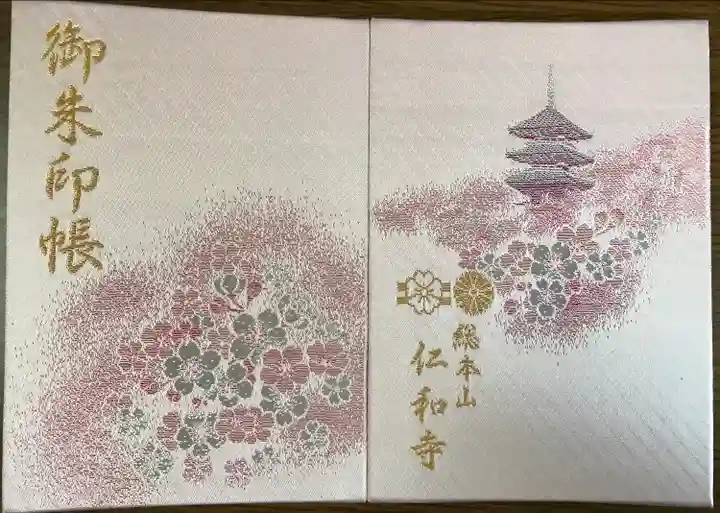 御朱印帳
総本山
仁和寺